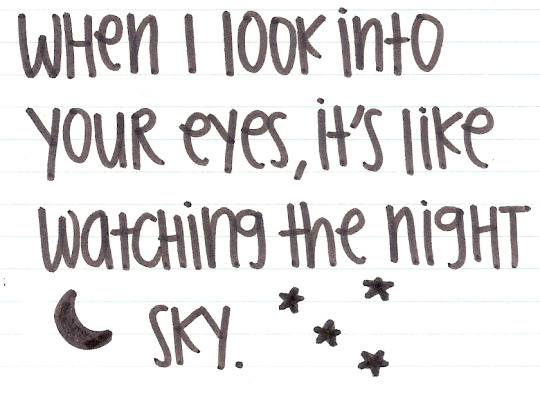 WHen I look into
youR eyes, it's like
watcHing the nigHT
SKY.